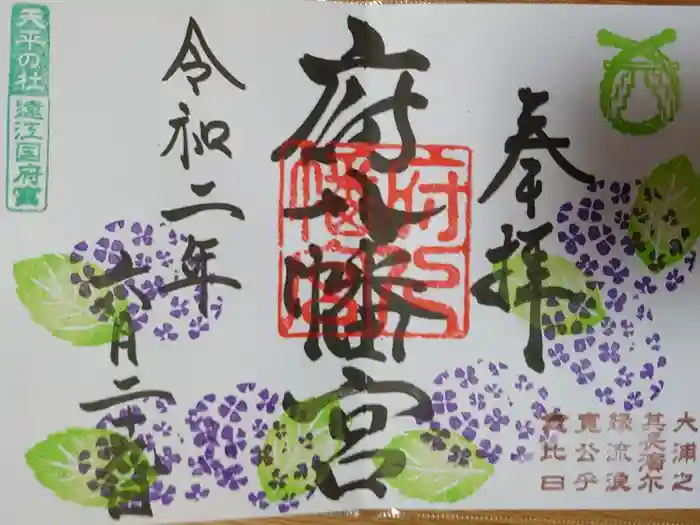 奉拝
府八幡宮
府八
幡宮
令和二年
六月二十六日
天平の社
遠江国府宮
大浦之
其長濱尓
縁流浪
寛公乎
念比日